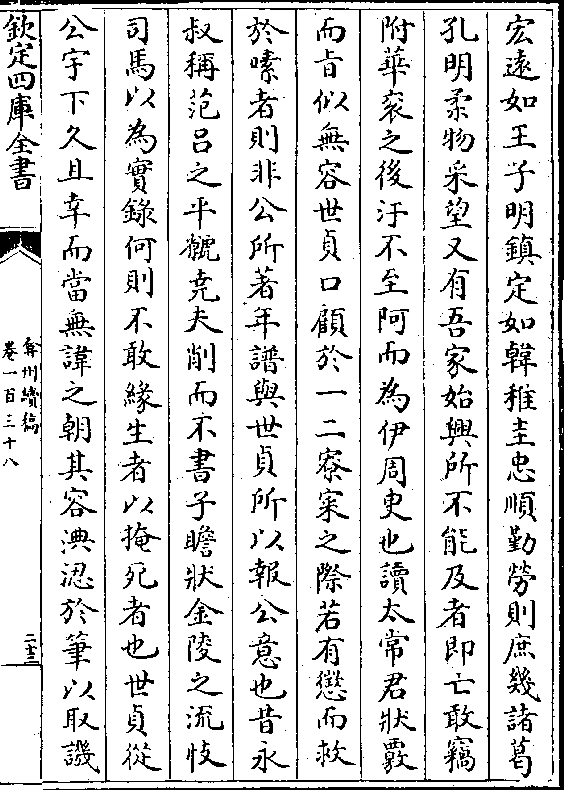 宏遠如王子明鎮定如韓稚圭忠順勤勞則庶幾諸葛
孔明柔物采望又有吾家始興所不能及者即亡敢竊
附華衮之後汙不至阿而為伊周吏也讀太常君狀覈
而旨似無容世貞口顧於一二寮寀之際若有懲而救
於嗉者則非公所著年譜與世貞所以報公意也昔永
叔稱范吕之平讞堯夫削而不書子瞻狀金陵之流忮
司馬以為實錄何則不敢緣生者以掩死者也世貞從
公宇下久且幸而當無諱之朝其容淟涊於筆以取譏
欽定四庫全書
弇州續稿
卷一百三十八
二十三